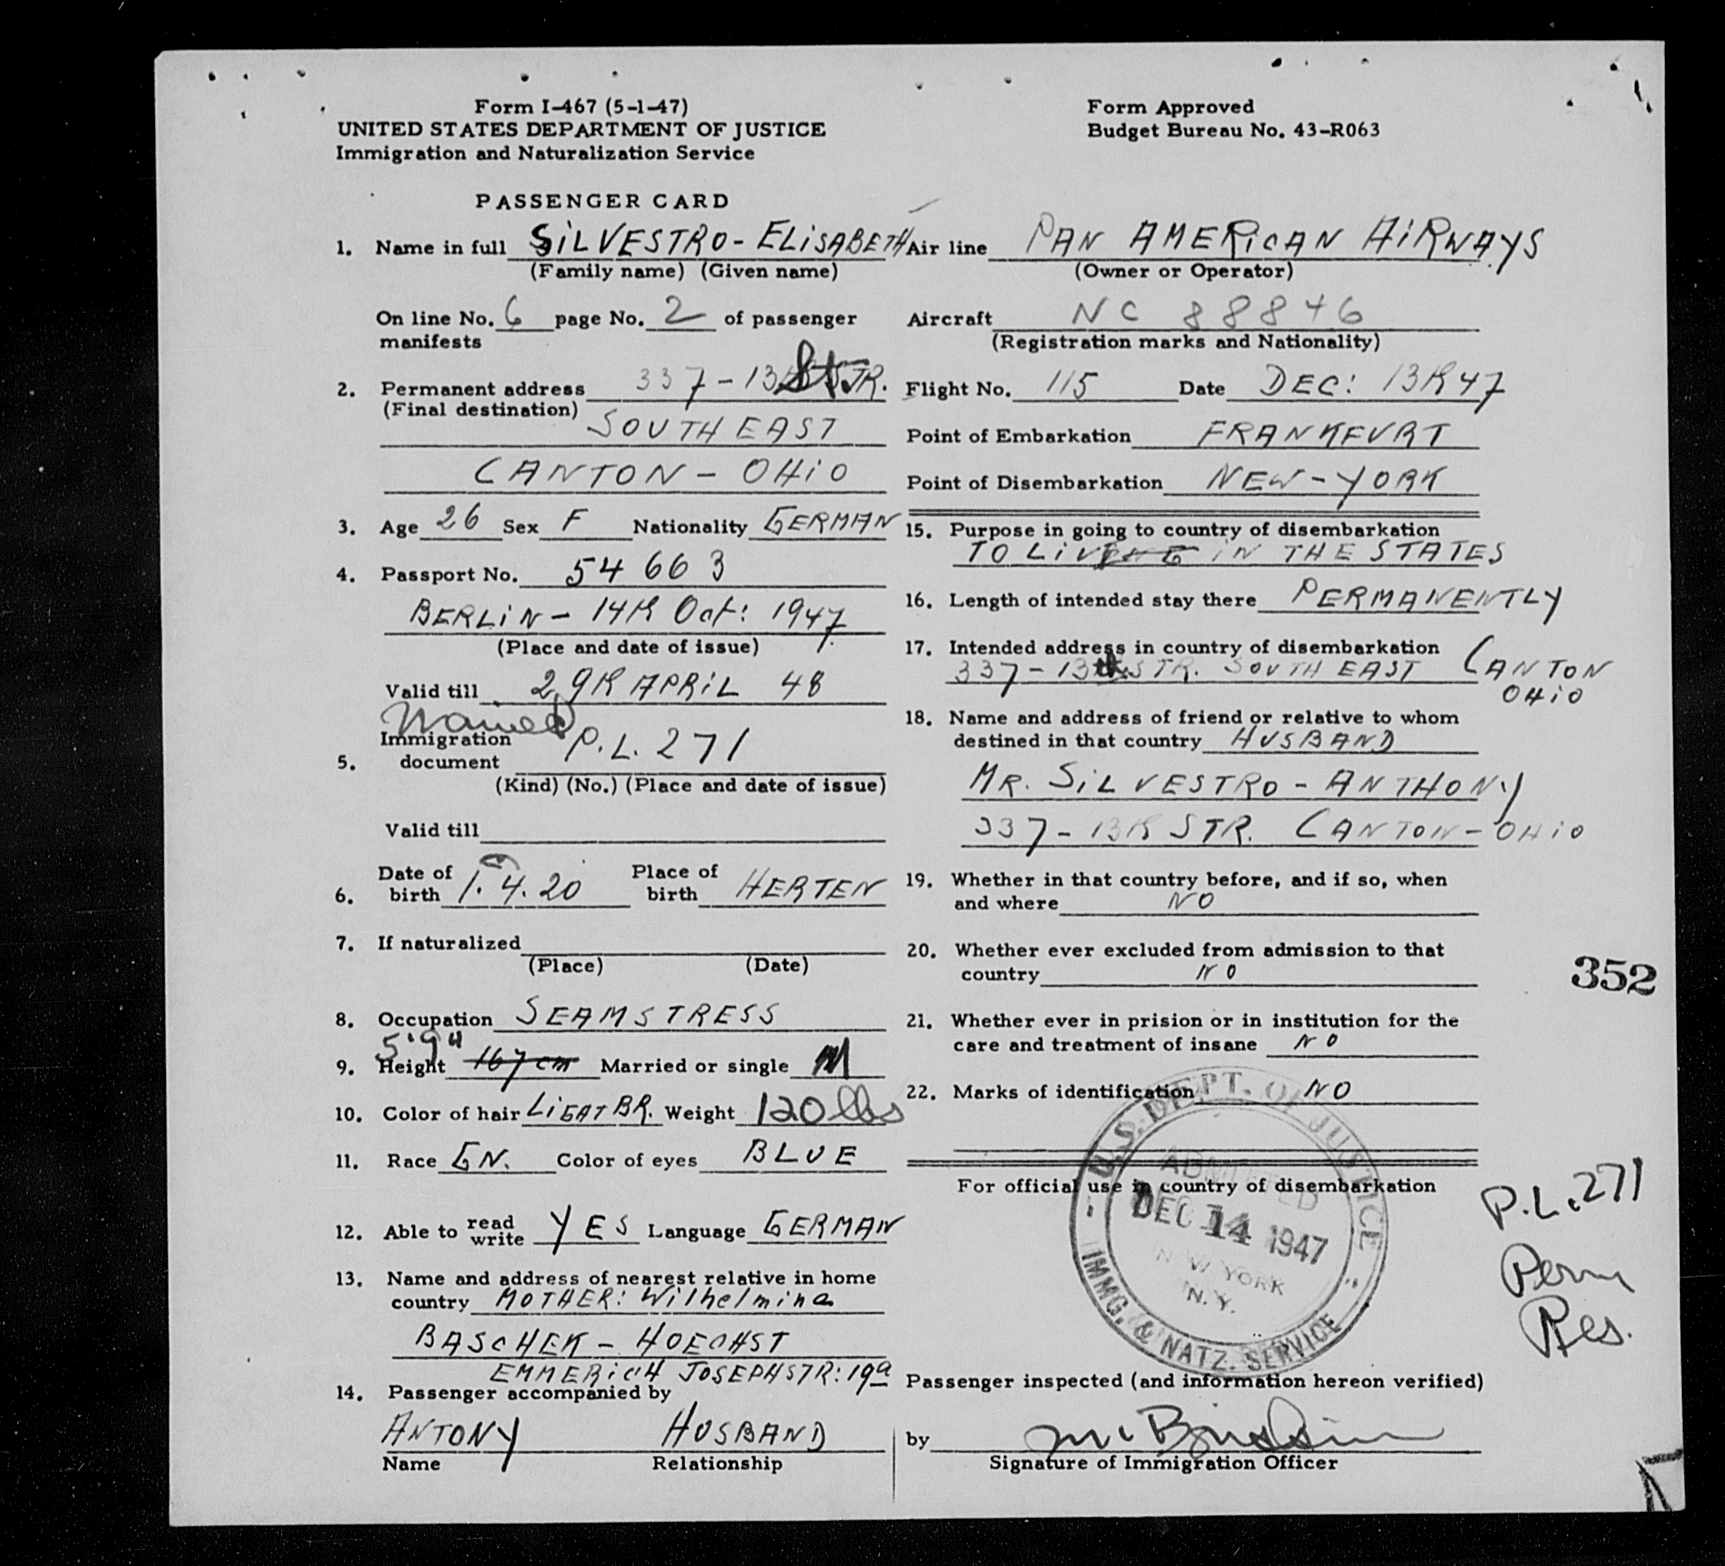 Form I-467 (5-1-47)
UNITED STATES DEPARTMENT OF JUSTICE
Immigration and Naturalization Service
Form Approved
Budget Bureau No. 43-R063
PASSENGER CARD
1. Name in full SILVESTRO - ELISABETH
(Family name) (Given name)
On line No. 6 page No. 2 of passenger
manifests
2. Permanent address 337 - 13 St STR.
(Final destination)
SOUTH EAST
CANTON - OHIO
3. Age 26 Sex F Nationality GERMAN
4. Passport No. 54 663
BERLIN - 14th Oct: 1947
(Place and date of issue)
Valid till 29th APRIL 48
Waived
Immigration
5. document P.L. 271
(Kind) (No.) (Place and date of issue)
Valid till
6. Date of birth 1. 4. 20 Place of birth HERTEN
7. If naturalized
(Place) (Date)
8. Occupation SEAMSTRESS
5' 9"
9. Height 167 cm Married or single M
10. Color of hair LIGAT BR. Weight 120 lbs
11. Race GN. Color of eyes BLUE
12. Able to read write YES Language GERMAN
13. Name and address of nearest relative in home
country MOTHER: Wilhelmina
BASCHEK - HOECHST
EMMERICH JOSEPHSTR: 19a
14. Passenger accompanied by
ANTONY HUSBAND
Name Relationship
Air line PAN AMERICAN AIRWAYS
(Owner or Operator)
Aircraft NC 88846
(Registration marks and Nationality)
Flight No. 115 Date DEC: 13th 47
Point of Embarkation FRANKFURT
Point of Disembarkation NEW-YORK
15. Purpose in going to country of disembarkation
TO LIVE IN THE STATES
16. Length of intended stay there PERMANENTLY
17. Intended address in country of disembarkation
337 - 13th STR. SOUTH EAST CANTON
OHIO
18. Name and address of friend or relative to whom
destined in that country HUSBAND
MR. SILVESTRO - ANTHONY
337 - 13th STR. CANTON - OHIO
19. Whether in that country before, and if so, when
and where NO
20. Whether ever excluded from admission to that
country NO
352
21. Whether ever in prision or in institution for the
care and treatment of insane NO
22. Marks of identification NO
For official use in country of disembarkation
U.S. DEPT. OF JUSTICE
ADMITTED
DEC 14 1947
NEW YORK
N. Y.
IMMG. & NATZ. SERVICE
P.L. 271
Perm
Res.
Passenger inspected (and information hereon verified)
by
Signature of Immigration Officer